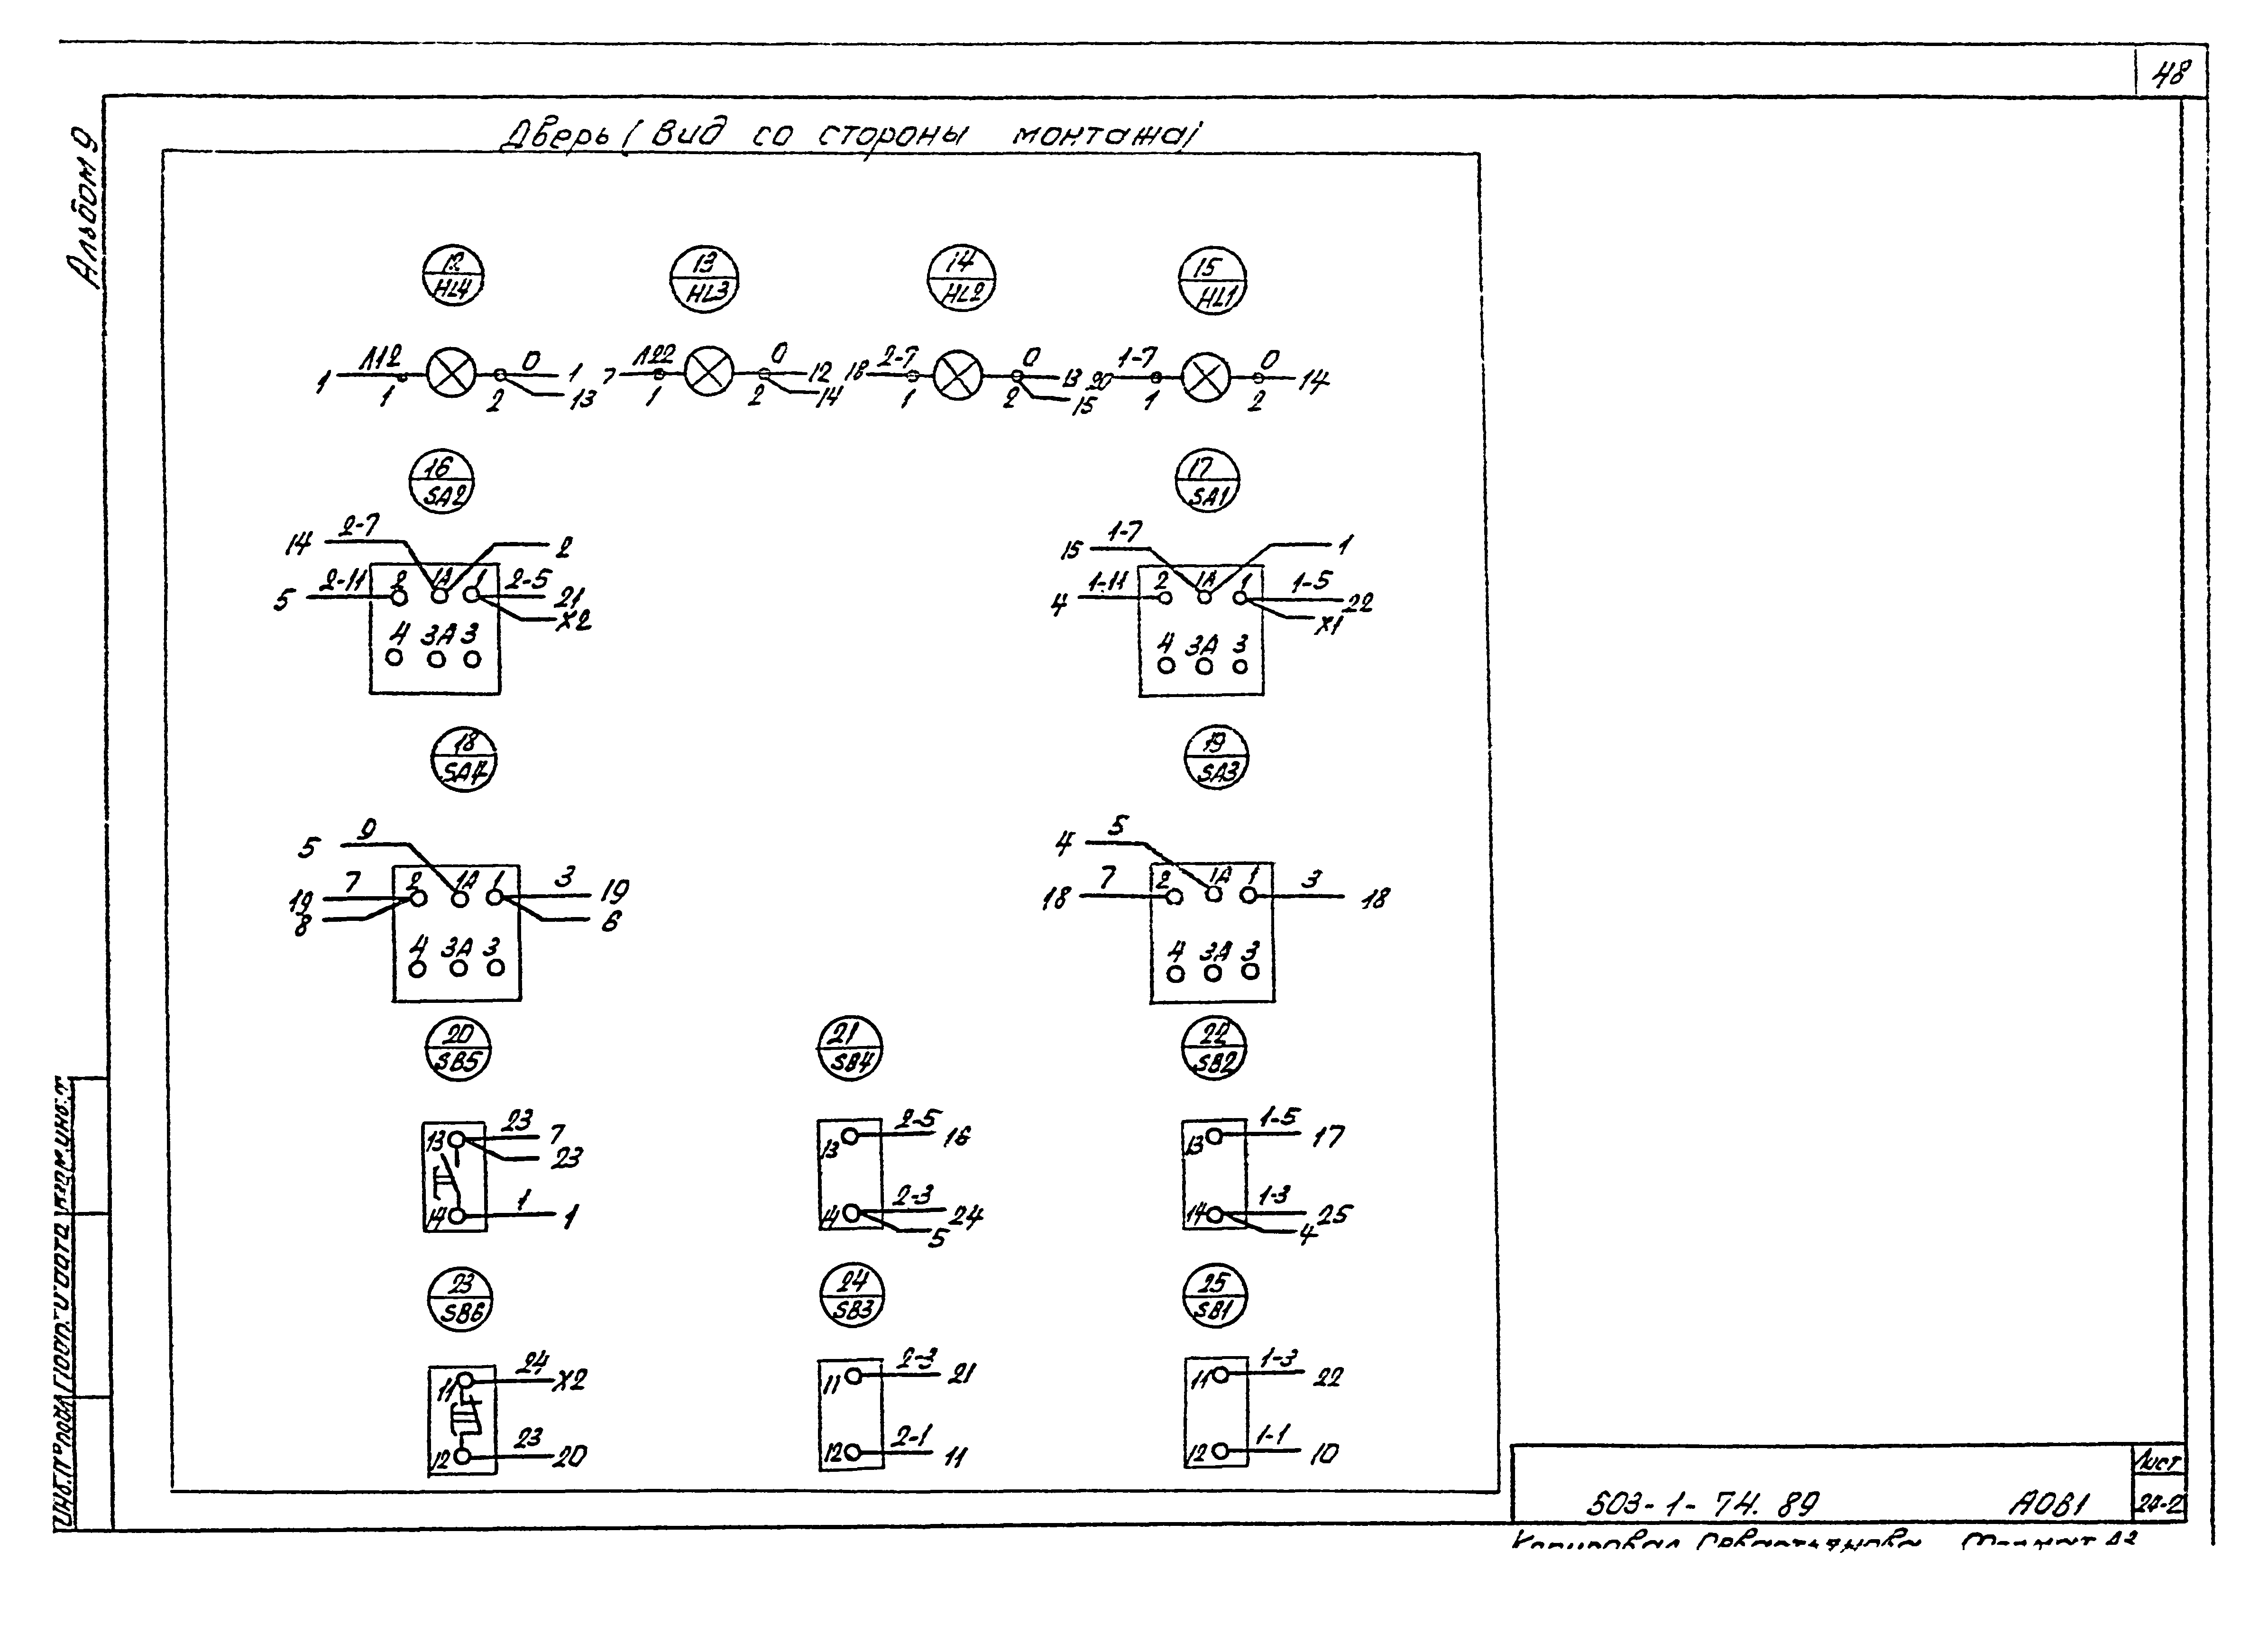 48
Альбом 9
Дверь (вид со стороны монтажа)
12 13 14 15
HL4 HL3 HL2 HL1
1 Л12 0 1 7 Л22 0 12 18 2-7 0 13 20 1-7 0 14
1 2 13 1 2 14 1 2 15 1 2
16 17
SA2 SA1
14 2-7 2 15 1-7 1
5 2-11 2 1А 1 2-5 21 4 1-11 2 1А 1 1-5 22
X2 X1
4 3А 3 4 3А 3
18 19
SA4 SA3
5 9 4 5
19 7 2 1А 1 3 19 18 7 2 1А 1 3 18
8 6
4 3А 3 4 3А 3
20 21 22
SB5 SB4 SB2
13 23 7 13 2-5 16 13 1-5 17
23
14 1 1 14 2-3 24 14 1-3 25
5 4
23 24 25
SB6 SB3 SB1
11 24 X2 11 2-3 21 11 1-3 22
12 23 20 12 2-1 11 12 1-1 10
503-1-74.89 АОВ1
Лист
24-2
Копировал Севастьянова Формат А3
Инв.№ подл. Подп. и дата Взам.инв.№